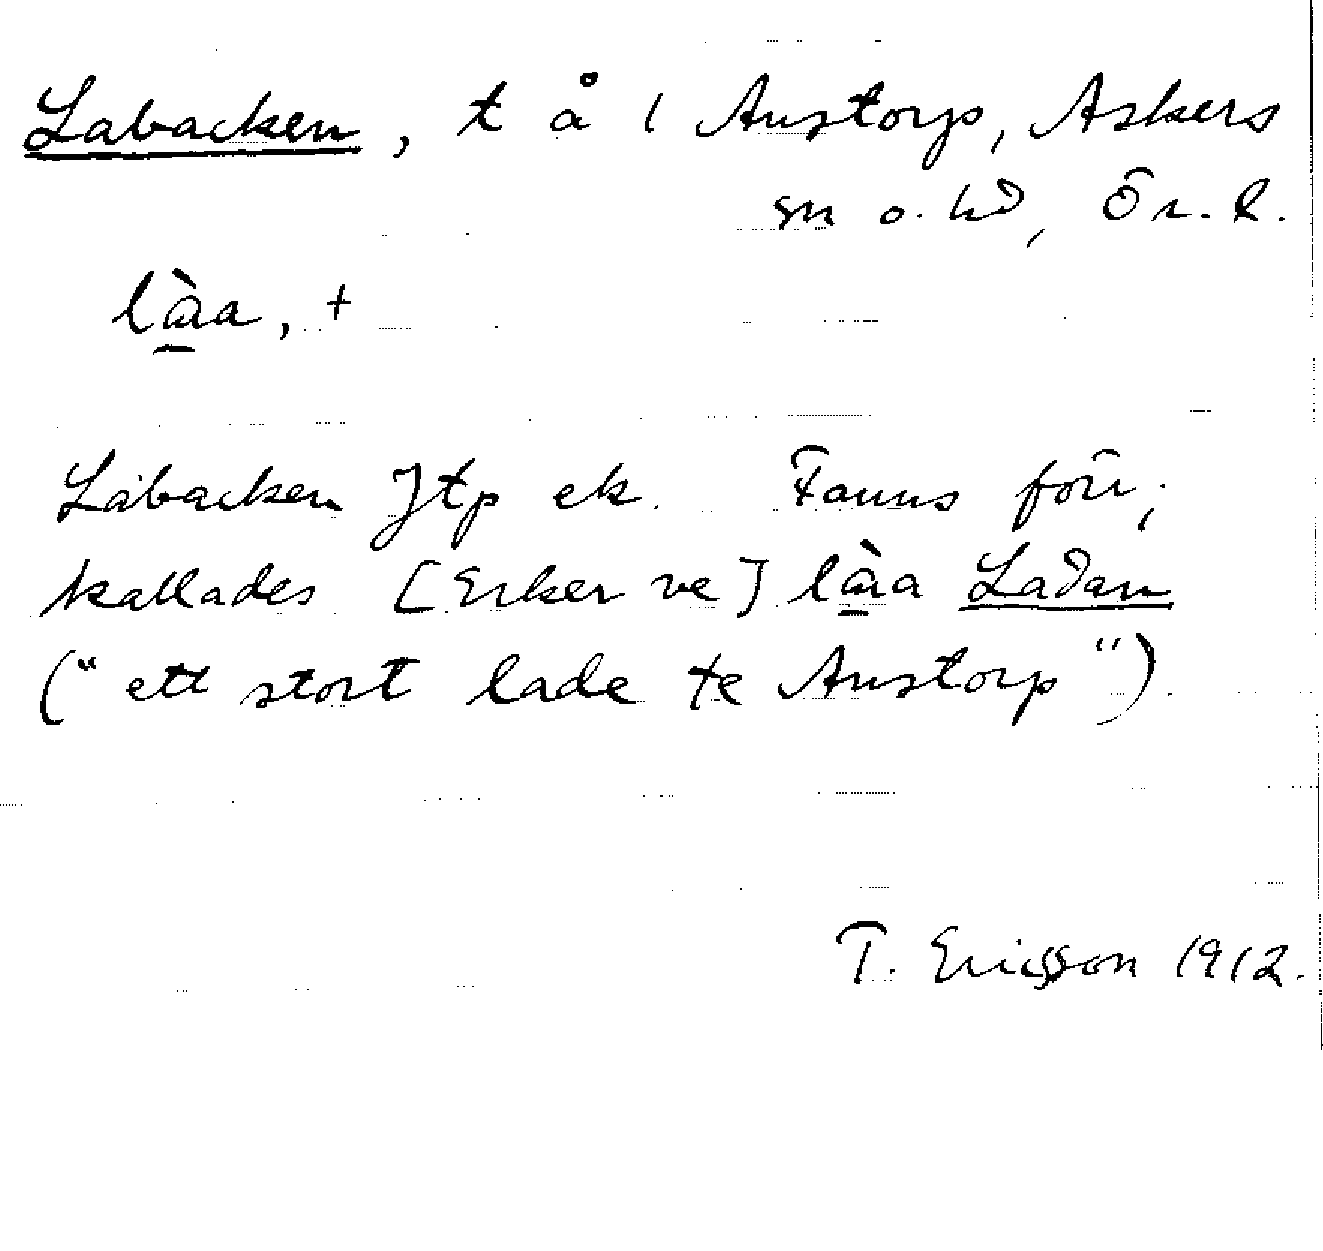 Labacken, t å 1 Austorp, Askers
sn o. hd, Ör. l.
làa, +
Labacken Jtp ek. Fanns förr;
kallades [Erker ve] làa Ladan
("ett stort lade te Austorp").
T. Ericsson 1912.